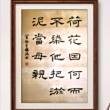 荷花因何而
不染他把淤
泥當母親